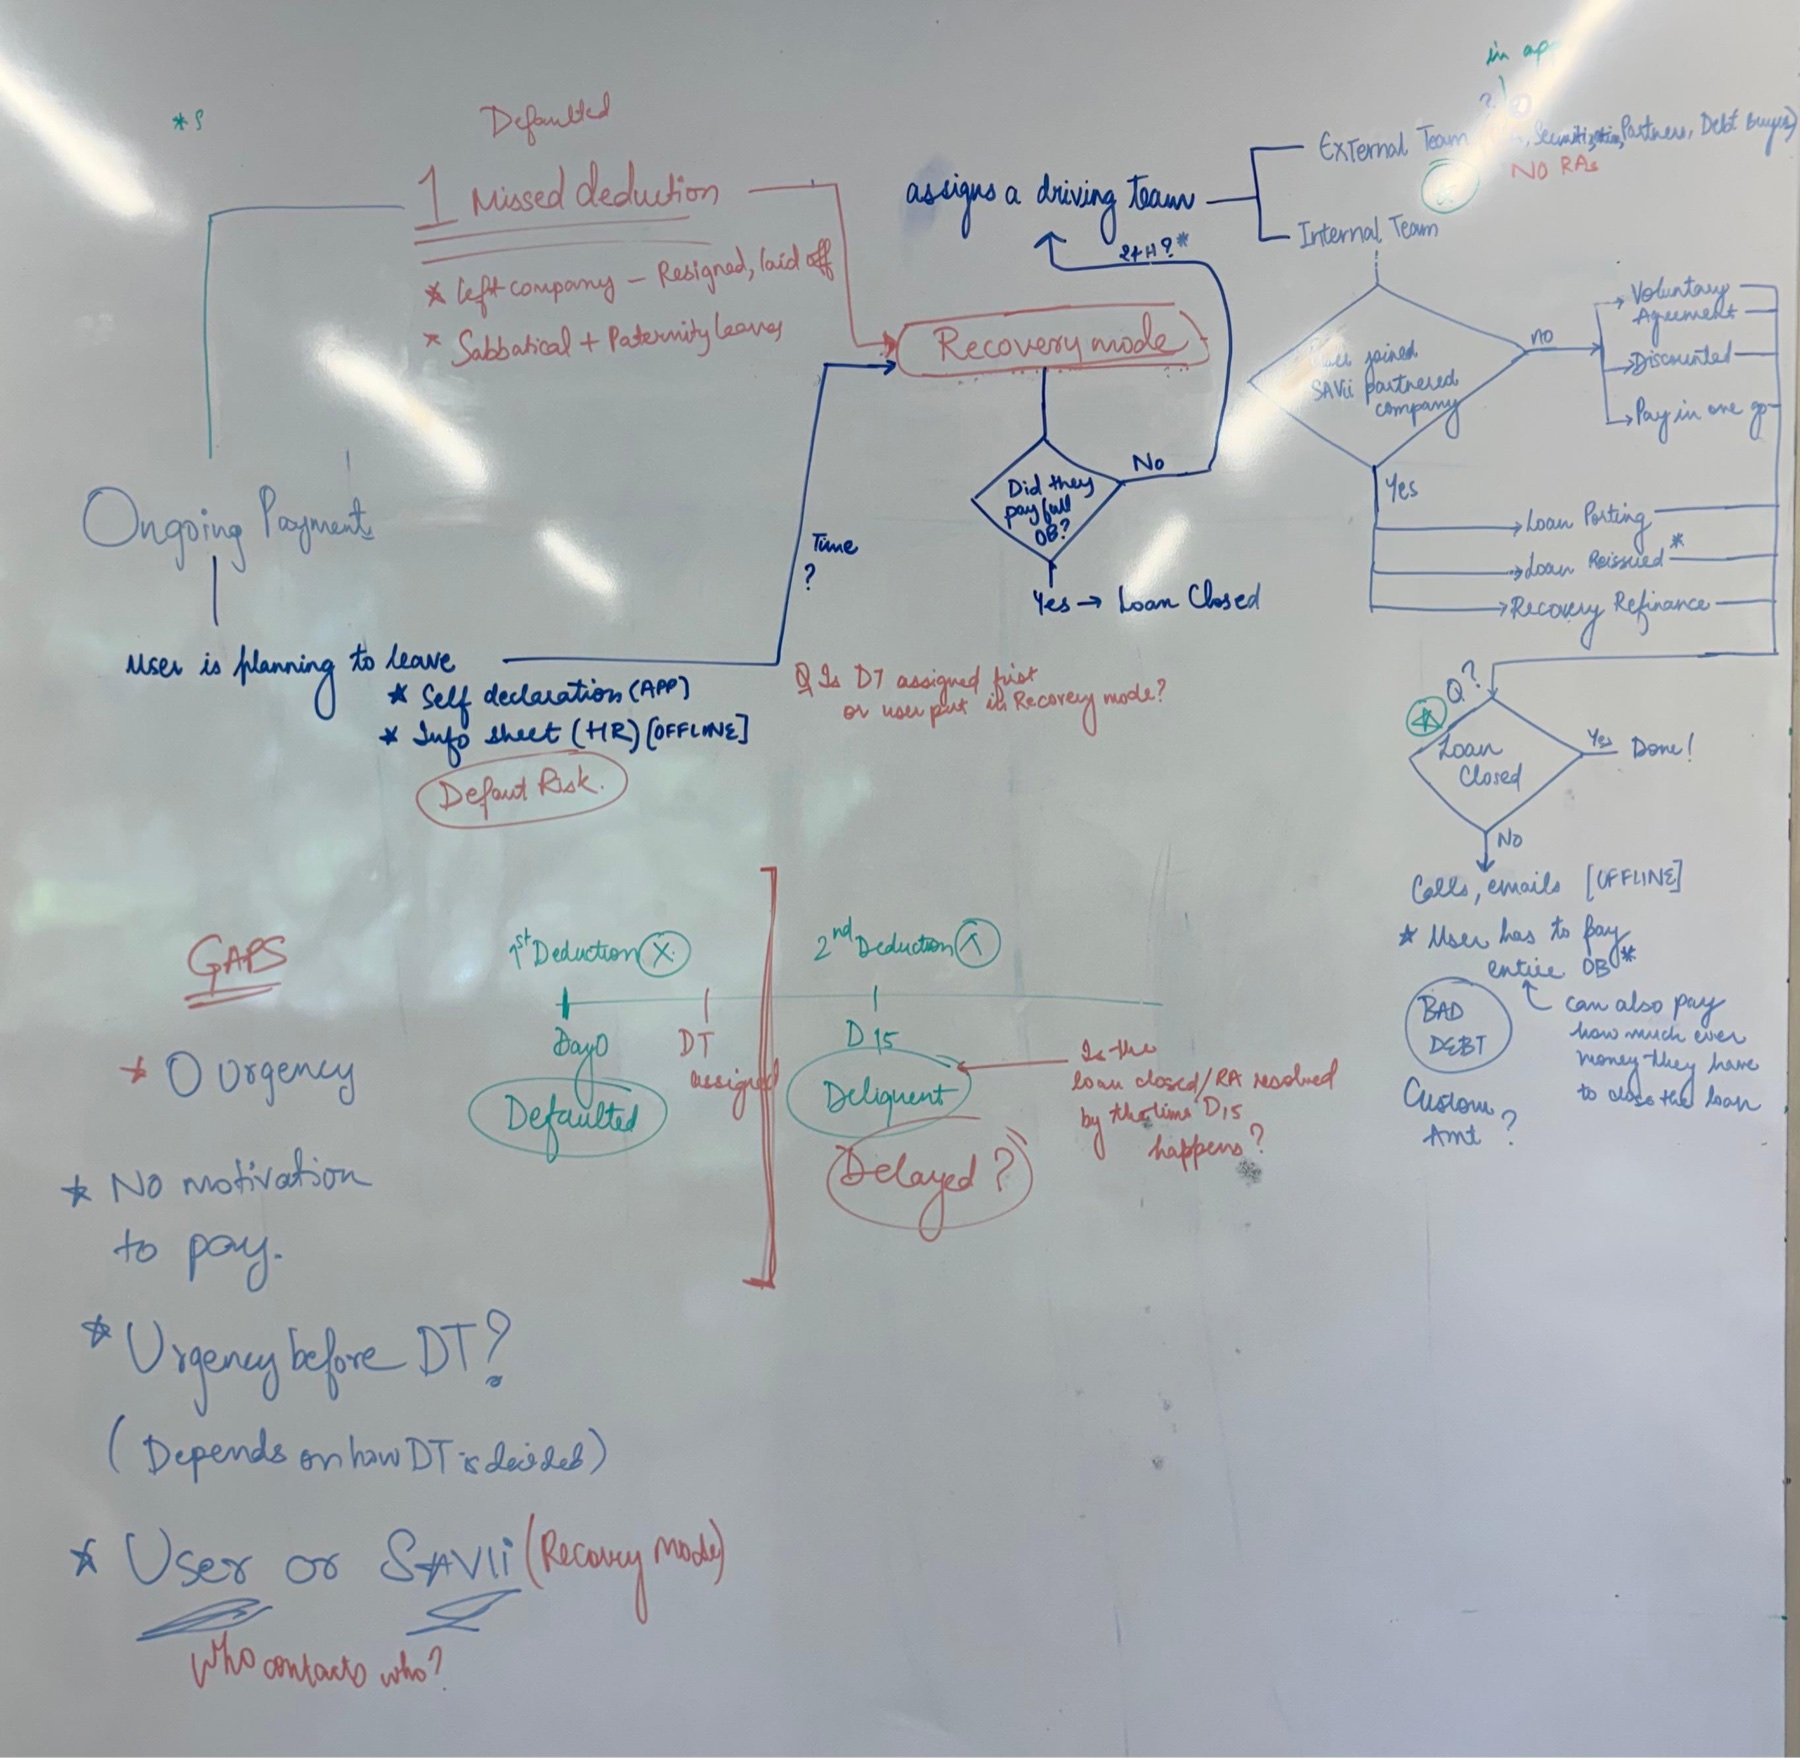 in app
Defaulted
1 Missed deduction
* Left company – Resigned, laid off
* Sabbatical + Paternity leaves
Ongoing Payments
User is planning to leave
* Self declaration (APP)
* Info sheet (HR) [OFFLINE]
Defaut Risk.
Time
?
Recovery mode
Did they
pay full
OB?
No
Yes → Loan Closed
24H? *
assigns a driving team
External Team
Partners, Debt Buyers)
NO RAs
Internal Team
joined
SAVii partnered
company
no
Voluntary
Agreement
Discounted
Pay in one go
Yes
Loan Porting
Loan Reissued *
Recovery Refinance
Q Is DT assigned first
or user put in Recovery mode?
Q?
Loan
Closed
Yes Done!
No
Calls, emails [OFFLINE]
* User has to pay
entire OB *
can also pay
how much ever
money they have
to close the loan
BAD
DEBT
Custom
Amt ?
GAPS
* 0 urgency
* No motivation
to pay.
* Urgency before DT?
(Depends on how DT is decided)
* User or SAVii (Recovery mode)
Who contacts who?
1st Deduction X
2nd Deduction
Day 0
DT
assigned
D 15
Defaulted
Deliquent
Delayed ?
Is the
loan closed/RA resolved
by the time D15
happens?